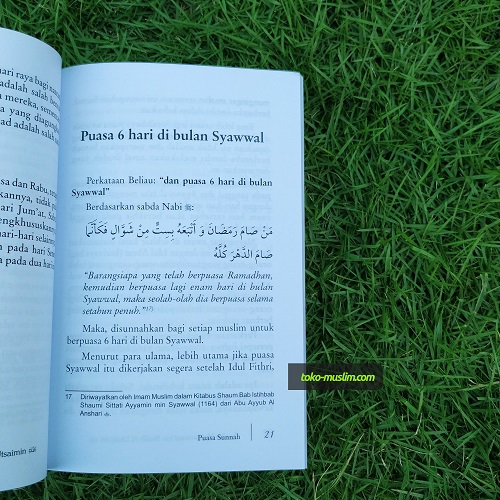 hari raya bagi
adalah salah
mereka,
yang
adalah salah
sa dan Rabu,
ari Jum'at,
engkhususkan
ari-hari
pada hari
pada dua
Utsaimin
Puasa 6 hari di bulan Syawwal
Perkataan Beliau: “dan puasa 6 hari di bulan
Syawwal”
Berdasarkan sabda Nabi ﷺ:
مَنْ صَامَ رَمَضَانَ وَ أَتْبَعَهُ بِسِتٍّ مِنْ شَوَّالٍ فَكَأَنَّمَا
صَامَ الدَّهْرَ كُلَّهُ
“Barangsiapa yang telah berpuasa Ramadhan,
kemudian berpuasa lagi enam hari di bulan
Syawwal, maka seolah-olah dia berpuasa selama
setahun penuh.”¹⁷⁾
Maka, disunnahkan bagi setiap muslim untuk
berpuasa 6 hari di bulan Syawwal.
Menurut para ulama, lebih utama jika puasa
Syawwal itu dikerjakan segera setelah Idul Fithri,
17 Diriwayatkan oleh Imam Muslim dalam Kitabus Shaum Bab Istihbab
Shaumi Sittati Ayyamin min Syawwal (1164) dari Abu Ayyub Al
Anshari
Puasa Sunnah 21
toko-muslim.com